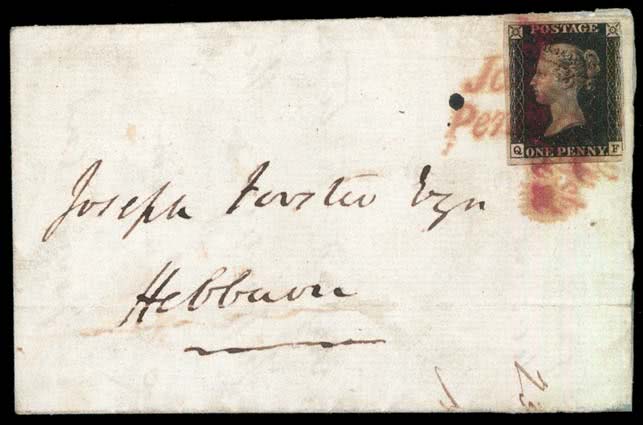 POSTAGE
Q ONE PENNY F
Joseph Forster Esqr
Hebburn